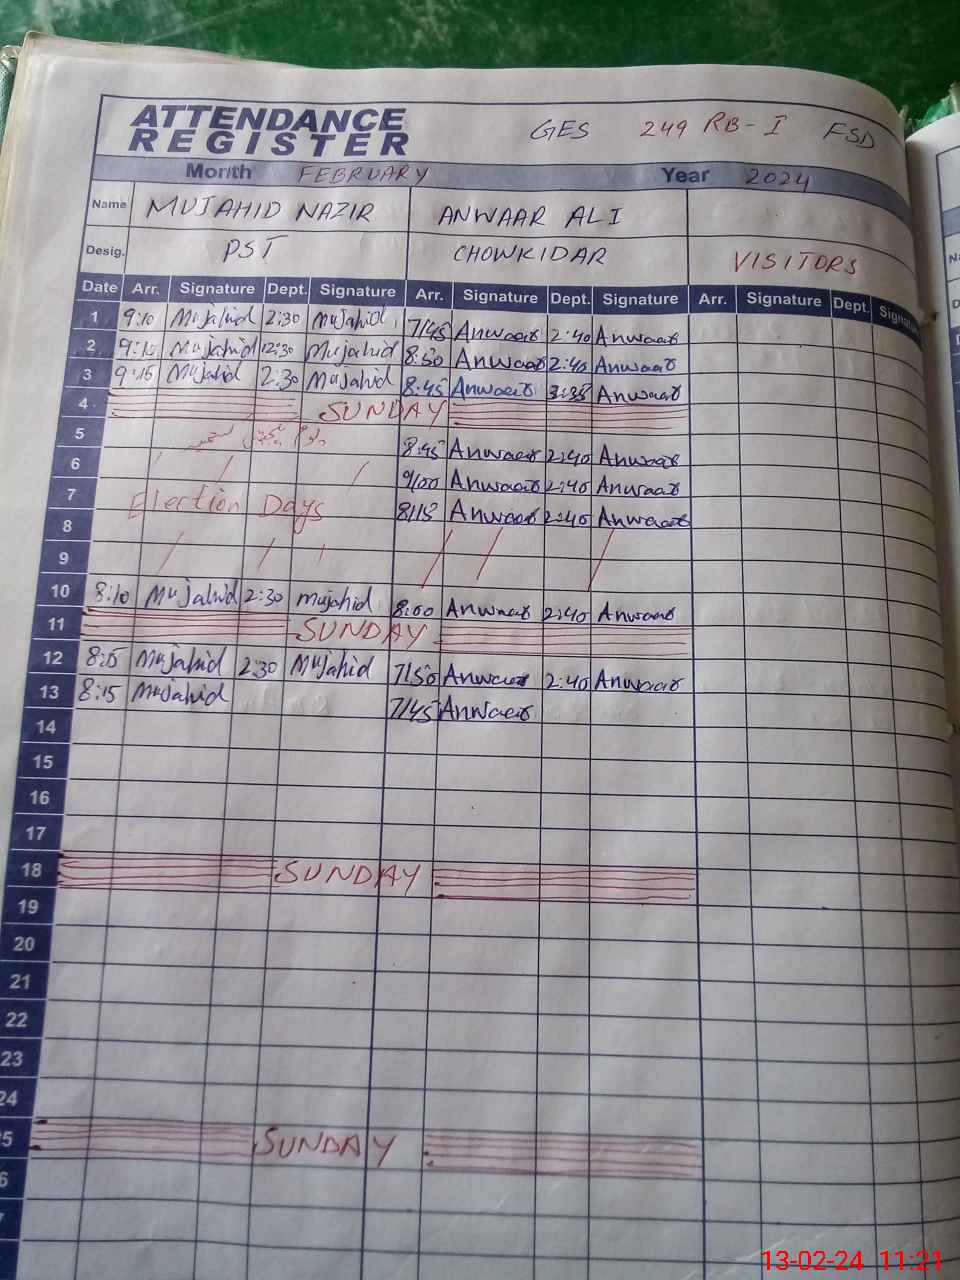 ATTENDANCE
REGISTER
GES 249 RB-I FSD
Month FEBRUARY Year 2024
Name MUJAHID NAZIR ANWAAR ALI
Desig. PST CHOWKIDAR VISITORS
Date Arr. Signature Dept. Signature Arr. Signature Dept. Signature Arr. Signature Dept. Signatu
1 9:10 Mujahid 2:30 Mujahid 7/45 Anwaar 2:40 Anwaar
2 9:15 Mujahid 12:30 Mujahid 8:30 Anwaar 2:40 Anwaar
3 9:15 Mujahid 2:30 Mujahid 8:45 Anwaar Anwaar
4 SUNDAY
5 8:45 Anwaar 2:40 Anwaar
6 9/00 Anwaar 2:40 Anwaar
7 Election Days 8/15 Anwaar 2:40 Anwaar
8
9
10 8:10 Mujahid 2:30 mujahid 8:00 Anwaar 2:40 Anwaar
11 SUNDAY
12 8:15 Mujahid 2:30 Mujahid 7/50 Anwaar 2:40 Anwaar
13 8:15 Mujahid 7/45 Anwaar
14
15
16
17
18 SUNDAY
19
20
21
22
23
24
5 SUNDAY
6
13-02-24 11:21